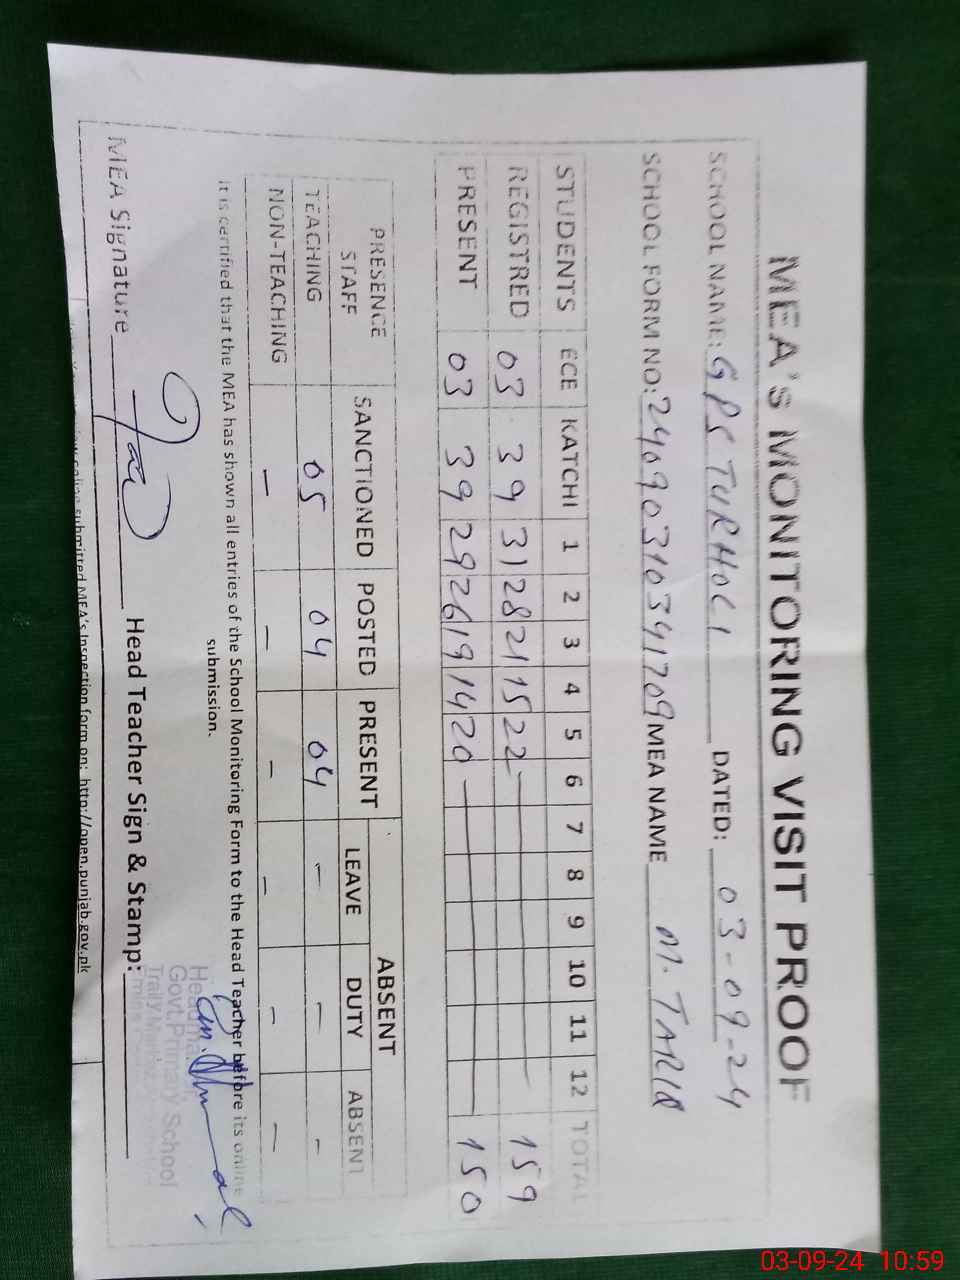 MEA'S MONITORING VISIT PROOF
SCHOOL NAME: GPS TURHOLI DATED: 03-09-24
SCHOOL FORM NO: 24090310341709 MEA NAME M. TARIQ
STUDENTS ECE KATCHI 1 2 3 4 5 6 7 8 9 10 11 12 TOTAL
REGISTRED 03 39 31 28 21 15 22 — 159
PRESENT 03 39 29 26 19 14 20 — 150
PRESENCE STAFF SANCTIONED POSTED PRESENT ABSENT
LEAVE DUTY ABSENT
TEACHING 05 04 04 - - -
NON-TEACHING - - - - - -
It is certified that the MEA has shown all entries of the School Monitoring Form to the Head Teacher before its online
submission.
MEA Signature Head Teacher Sign & Stamp:
Govt. Primary School
submitted MEA's Inspection form on: http://open.punjab.gov.pk
03-09-24 10:59